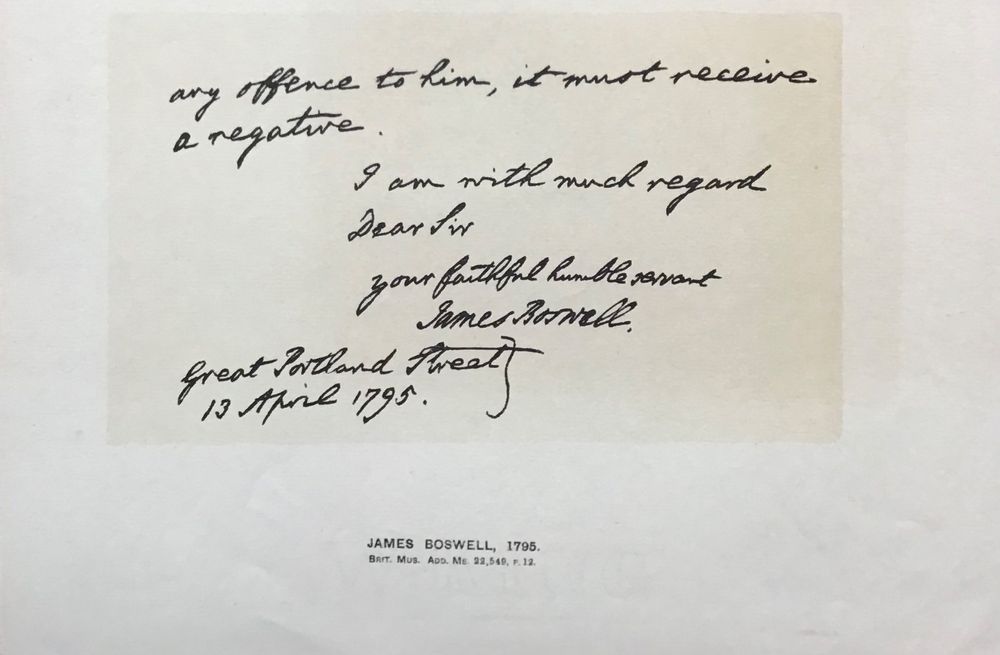 any offence to him, it must receive
a negative.
I am with much regard
Dear Sir
your faithful humble servant
James Boswell.
Great Portland Street
13 April 1795.
JAMES BOSWELL, 1795.
BRIT. MUS. ADD. MS. 22,549, F. 12.